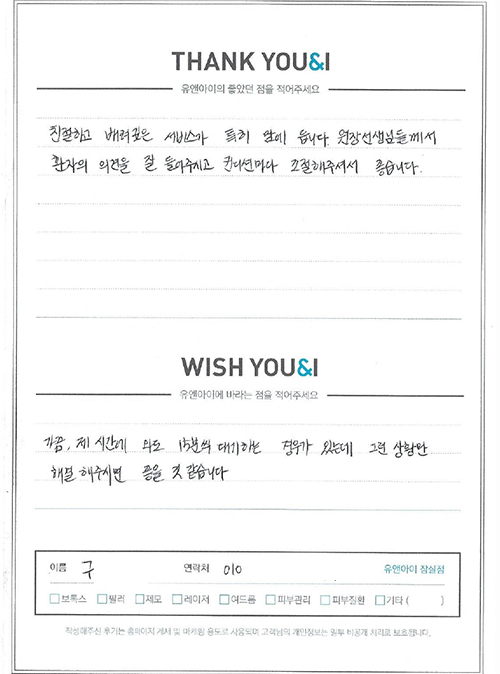 THANK YOU&I
유앤아이의 좋았던 점을 적어주세요
친절하고 배려깊은 서비스가 특히 맘에 듭니다. 원장선생님들께서
환자의 의견을 잘 들어주시고 컨디션마다 조절해주셔서 좋습니다.
WISH YOU&I
유앤아이에 바라는 점을 적어주세요
가끔, 제 시간에 와도 15분씩 대기하는 경우가 있는데 그런 상황만
해결 해주시면 좋을 것 같습니다
이름 구 연락처 010 유앤아이 잠실점
보톡스 필러 제모 레이저 여드름 피부관리 피부질환 기타 ( )
작성해주신 후기는 홈페이지 게재 및 마케팅 용도로 사용되며 고객님의 개인정보는 일부 비공개 처리로 보호됩니다.